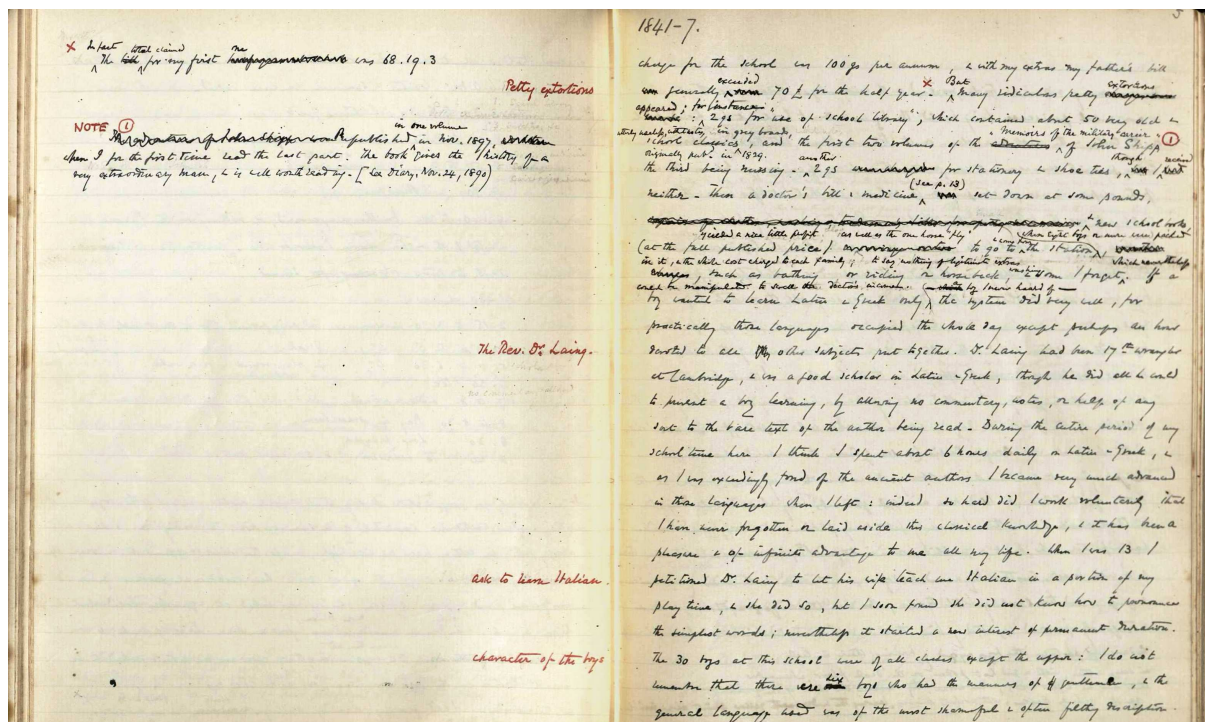 × In fact
The total claimed for my first me was 68.19.3
Petty extortions
NOTE ①
Republished in one volume in Nov. 1897,
when I for the first time read the last part. The book gives the history of a
very extraordinary man, & is well worth reading. [See Diary, Nov. 24, 1890)
The Rev. Dr. Laing.
ask to learn Italian.
character of the boys
1841-7.
charge for the school was 100 gs per annum, & with my extras my father's bill
generally exceeded 70 £ for the half year. × But many ridiculous petty extortions
appeared; for instance: "2gs for use of school library", which contained about 50 very old &
utterly useless, in grey boards,
school classics, and the first two volumes of the "Memoirs of the military career" of John Shipp ①
originally pub. in 1829.
the third being missing. another 2gs for stationery & shoe ties, though I received
neither. Then a doctor's bill & medicine (see p. 13) set down at some pounds,
new school books
yielded a nice little profit as well as the one horse fly when eight boys or more were packed
(at the full published price) to go to the station,
in it, & the whole cost charged to each family; to say nothing of legitimate extras
such as bathing or riding on horseback & some I forget. If a
could be manipulated to swell the Doctor's income.
boy wanted to learn Latin & Greek only, the system did very well, for
practically those languages occupied the whole day except perhaps an hour
devoted to all other subjects put together. Dr. Laing had been 17th wrangler
at Cambridge, & was a good scholar in Latin & Greek, though he did all he could
to prevent a boy learning, by allowing no commentary, notes, or help of any
sort to the bare text of the author being read. During the entire period of my
school time here I think I spent about 6 hours daily on Latin & Greek, &
as I was exceedingly fond of the ancient authors I became very much advanced
in those languages when I left: indeed so hard did I work voluntarily that
I have never forgotten or laid aside this classical knowledge, & it has been a
pleasure & of infinite advantage to me all my life. When I was 13 I
petitioned Dr. Laing to let his wife teach me Italian in a portion of my
play time, & she did so, but I soon found she did not know how to pronounce
the simplest words; nevertheless it started a new interest of permanent duration.
The 30 boys at this school were of all classes except the upper: I do not
remember that there were boys who had the manners of gentlemen, & the
general language used was of the most shameful & often filthy description.